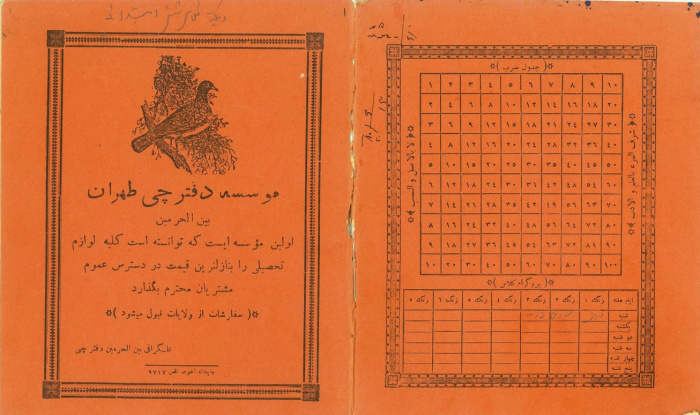 موسسه دفترچی طهران
بین الحرمین
اولین مؤسسه ایست که توانسته است کلیه لوازم
تحصیلی را بنازلترین قیمت در دسترس عموم
مشتریان محترم بگذارد
*( سفارشات از ولایات قبول میشود )*
تلگرافی بین الحرمین دفترچی
*( جدول ضرب )*
۱ ۲ ۳ ۴ ۵ ۶ ۷ ۸ ۹ ۱۰
۲ ۴ ۶ ۸ ۱۰ ۱۲ ۱۴ ۱۶ ۱۸ ۲۰
۳ ۶ ۹ ۱۲ ۱۵ ۱۸ ۲۱ ۲۴ ۲۷ ۳۰
۴ ۸ ۱۲ ۱۶ ۲۰ ۲۴ ۲۸ ۳۲ ۳۶ ۴۰
۵ ۱۰ ۱۵ ۲۰ ۲۵ ۳۰ ۳۵ ۴۰ ۴۵ ۵۰
۶ ۱۲ ۱۸ ۲۴ ۳۰ ۳۶ ۴۲ ۴۸ ۵۴ ۶۰
۷ ۱۴ ۲۱ ۲۸ ۳۵ ۴۲ ۴۹ ۵۶ ۶۳ ۷۰
۸ ۱۶ ۲۴ ۳۲ ۴۰ ۴۸ ۵۶ ۶۴ ۷۲ ۸۰
۹ ۱۸ ۲۷ ۳۶ ۴۵ ۵۴ ۶۳ ۷۲ ۸۱ ۹۰
۱۰ ۲۰ ۳۰ ۴۰ ۵۰ ۶۰ ۷۰ ۸۰ ۹۰ ۱۰۰
*( شرف المرء بالعلم و الادب )*
*( لا بالاصل و النسب )*
*( پروگرام کلاس )*
ایام هفته زنگ ۱ زنگ ۲ زنگ ۳ زنگ ۴ زنگ ۵ زنگ ۶
شنبه
یکشنبه
دو شنبه
سه شنبه
چهار شنبه
پنج شنبه